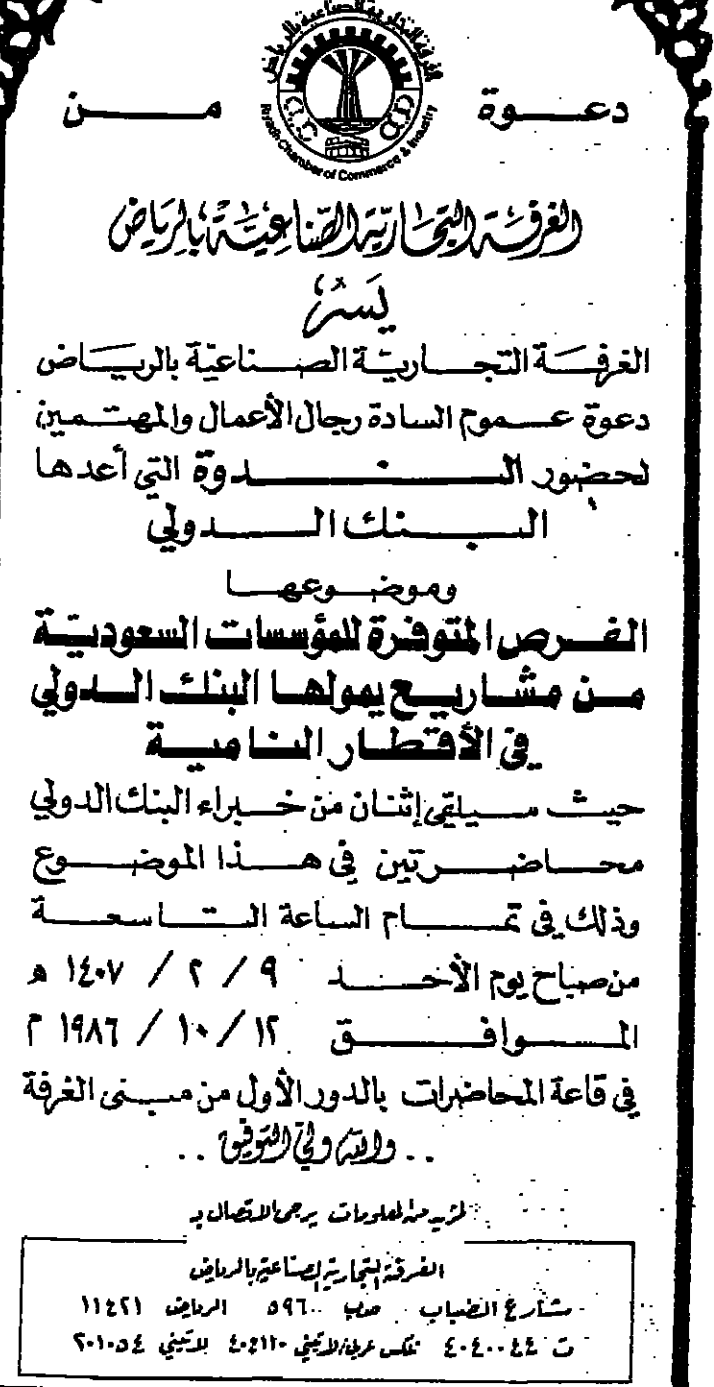 الغرفة التجارية الصناعية بالرياض
Riyadh Chamber of Commerce & Industry
دعوة من
الغرفة التجارية الصناعية بالرياض
يسر
الغرفة التجارية الصناعية بالرياض
دعوة عموم السادة رجال الأعمال والمهتمين
لحضور الندوة التي أعدها
البنك الدولي
وموضوعها
الفرص المتوفرة للمؤسسات السعودية
من مشاريع يمولها البنك الدولي
في الأقطار النامية
حيث سيلقي إثنان من خبراء البنك الدولي
محاضرتين في هذا الموضوع
وذلك في تمام الساعة التاسعة
من صباح يوم الأحد ٩ / ٢ / ١٤٠٧ هـ
الموافق ١٢ / ١٠ / ١٩٨٦ م
في قاعة المحاضرات بالدور الأول من مبنى الغرفة
.. والله ولي التوفيق ..
لمزيد من المعلومات يرجى الاتصال بـ
الغرفة التجارية الصناعية بالرياض
شارع الضباب ص.ب ٥٩٦ الرياض ١١٤٢١
ت ٤٠٤٠٠٤٤ تلكس عربي/لاتيني ٤٠٤١١٠ لاتيني ٢٠١٠٥٤